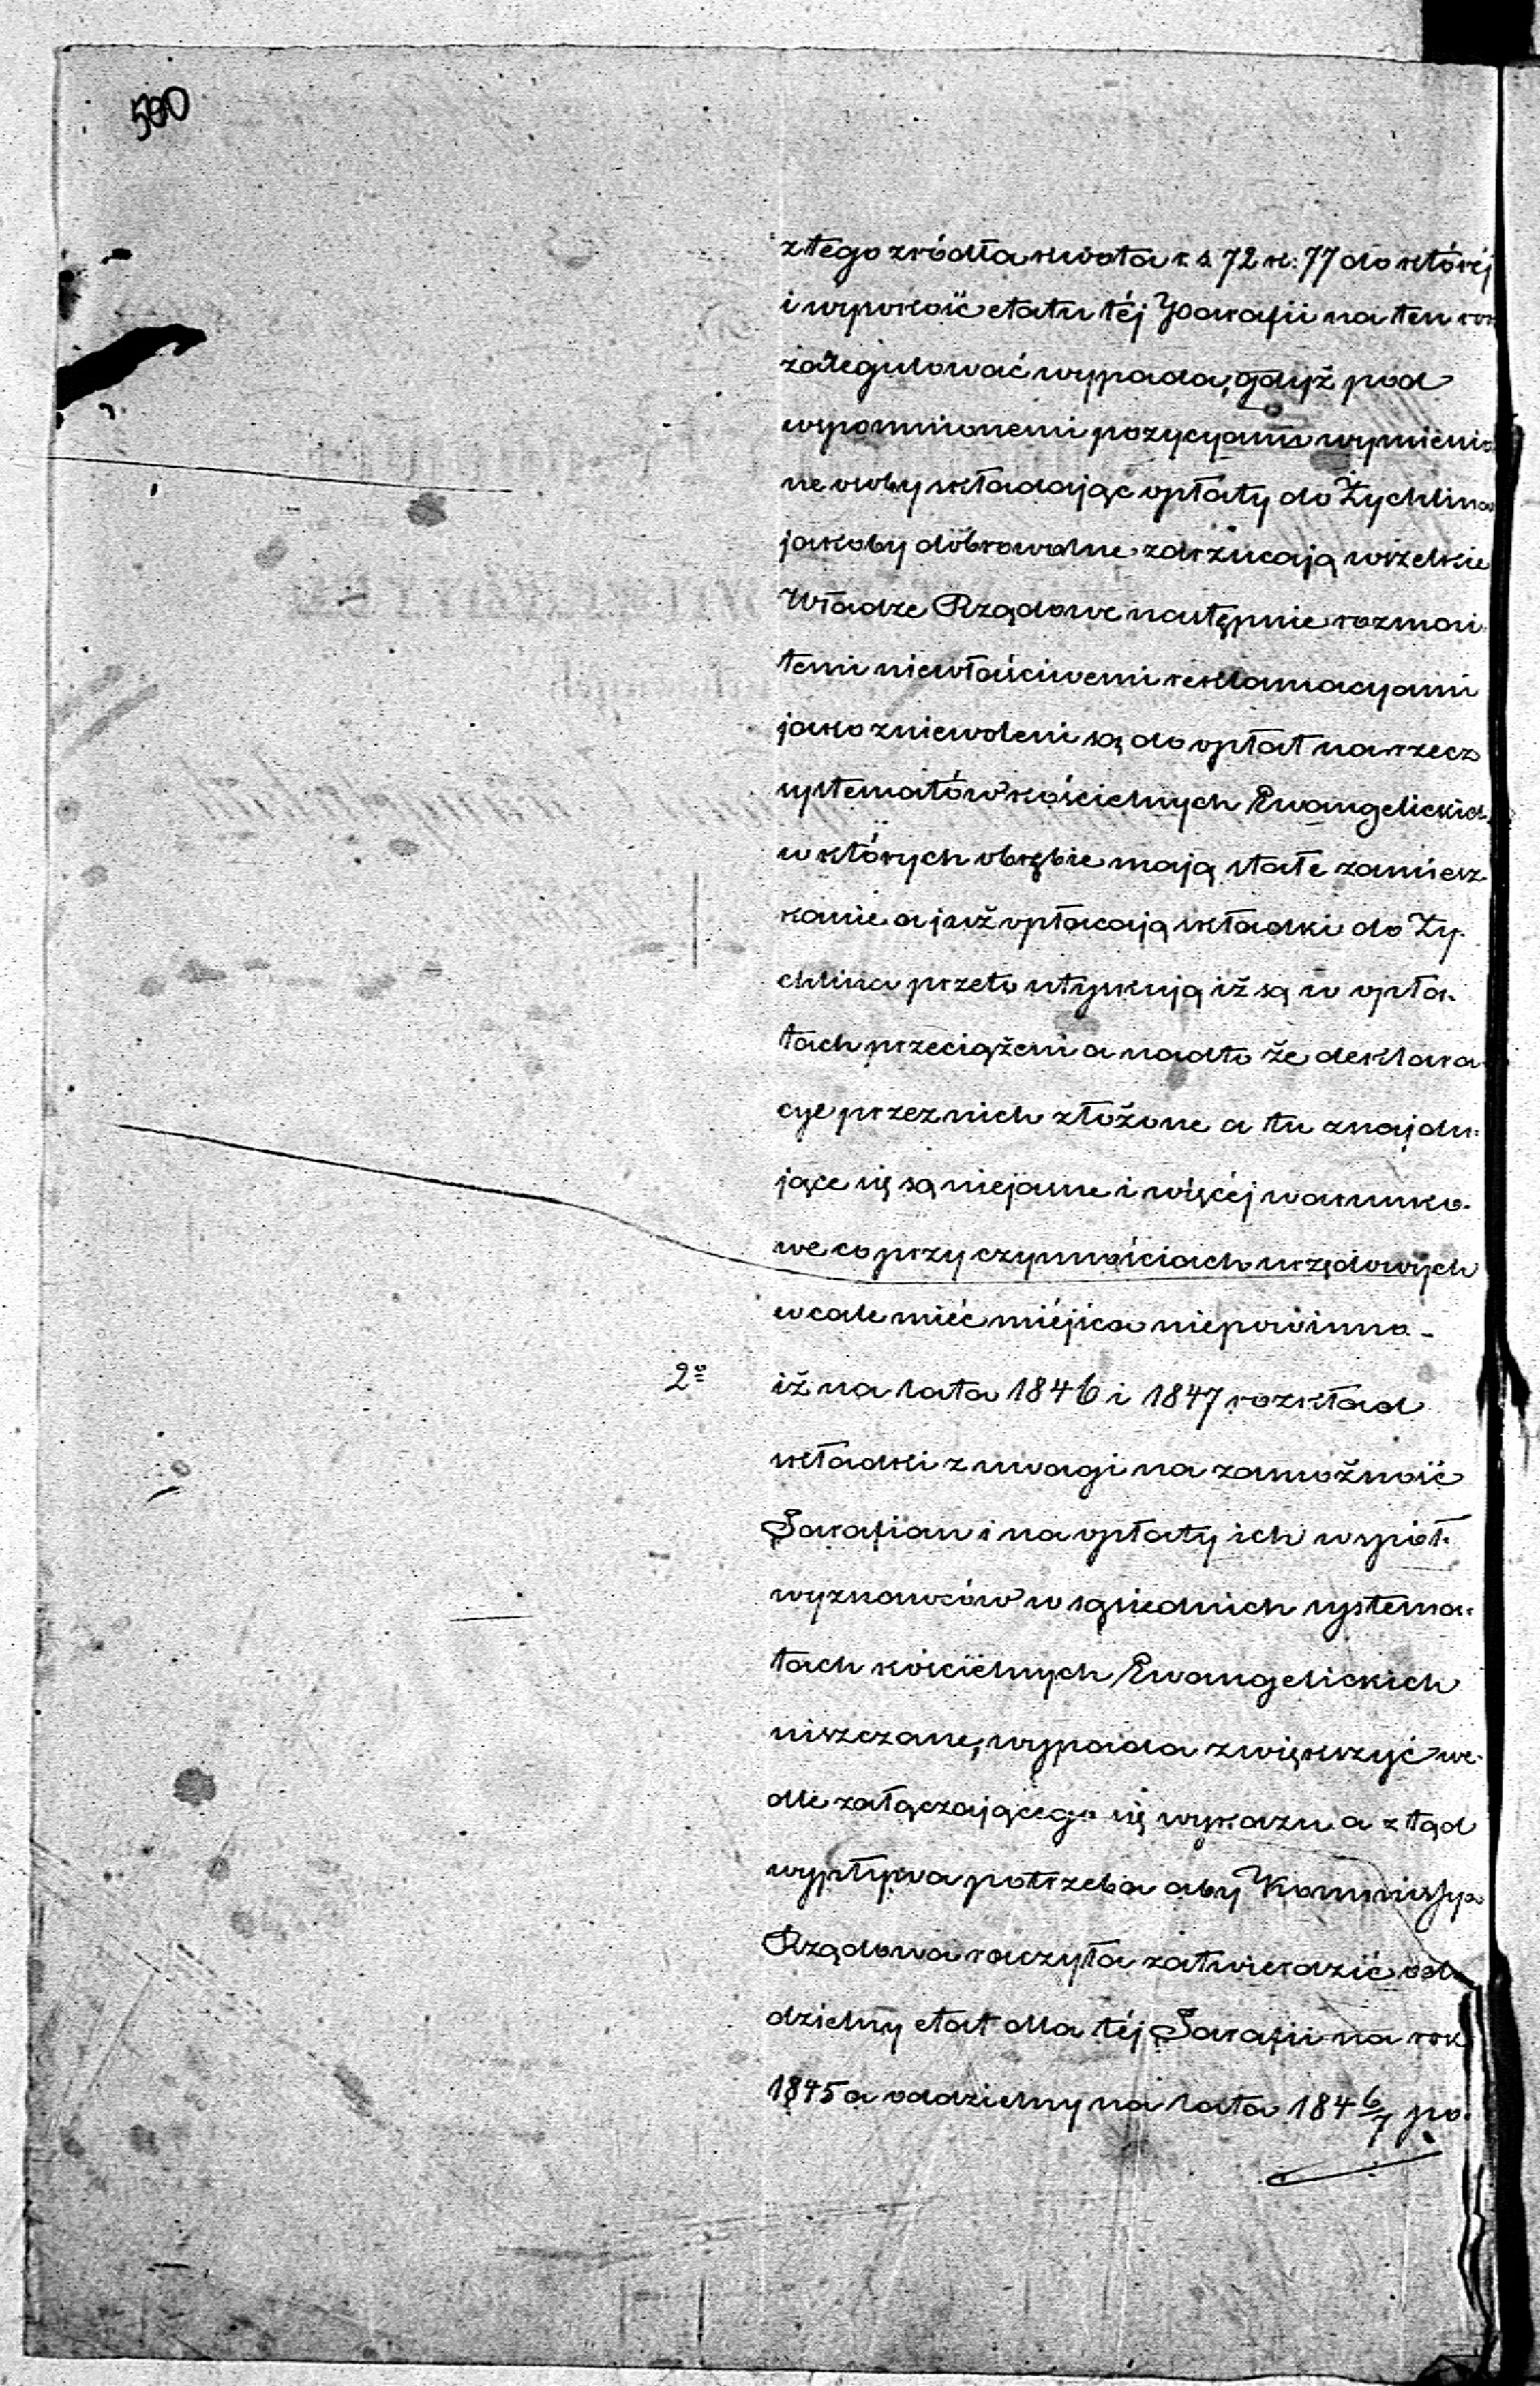 500
z tego zródła kwota r. s. 72 k: 77 do któréj
i wysokość etatu téj Parafii na ten rok
zaregulować wypada, gdyż pod
wspomnionemi pozycyami wymienio
ne osoby składając opłaty do Żychlina
jakoby dobrowolne zarzucają wszelkie
Władze Rządowe następnie rozmai
temi niewłaściwemi reklamacyami
jako zniewoleni są do opłat na rzecz
systematów kościelnych Ewangelickich
w których obrębie mają stałe zamiesz-
kanie a już opłacają składki do Ży-
chlina przeto utyskują iż są w opła-
tach przeciążeni a nadto że deklara-
cye przez nich złożone a tu znajdu-
jące się są niejasne i więcéj warunko-
we co przy czynnościach urzędowych
wcale mieć miéjsca niepowinno -
2º iż na lata 1846 i 1847 rozkład
składki z uwagi na zamożność
Parafian i na opłaty ich współ-
wyznawców w sąsiednich systema-
tach kościelnych Ewangelickich
uiszczane, wypada zwiększyć we-
dle załączającego się wykazu a ztąd
wypływa potrzeba aby Kommissya
Rządowa raczyła zatwierdzić od-
dzielny etat dla téj Parafii na rok
1845 a oddzielny na lata 184 6/7 po-